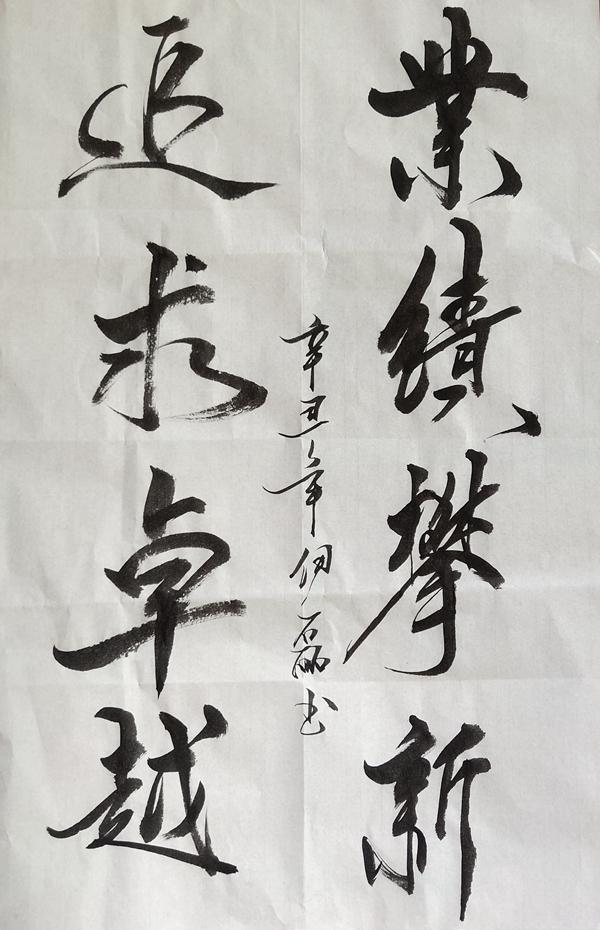 業績攀新
追求卓越
辛丑年伊磊书